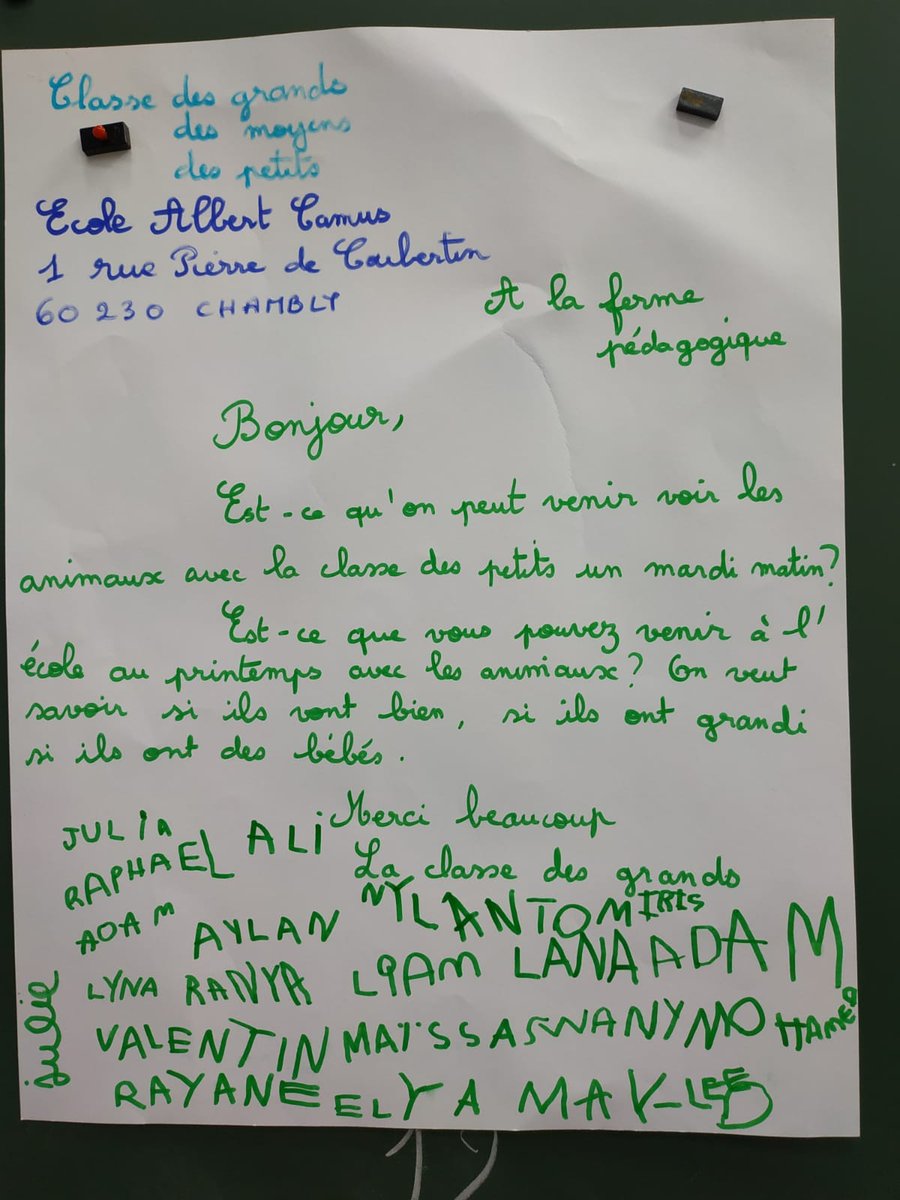 Classe des grands
des moyens
des petits
Ecole Albert Camus
1 rue Pierre de Coubertin
60 230 CHAMBLY
A la ferme
pédagogique
Bonjour,
Est-ce qu'on peut venir voir les
animaux avec la classe des petits un mardi matin?
Est-ce que vous pouvez venir à l'
école au printemps avec les animaux? On veut
savoir si ils vont bien, si ils ont grandi
si ils ont des bébés.
Merci beaucoup
La classe des grands
JULIA
RAPHAEL ALI
ADAM AYLAN NYLAN TOM IRIS
LYNA RANYA LIAM LANA ADAM
julie
VALENTIN MAÏSSA SWANY MOHAMED
RAYANE ELYA